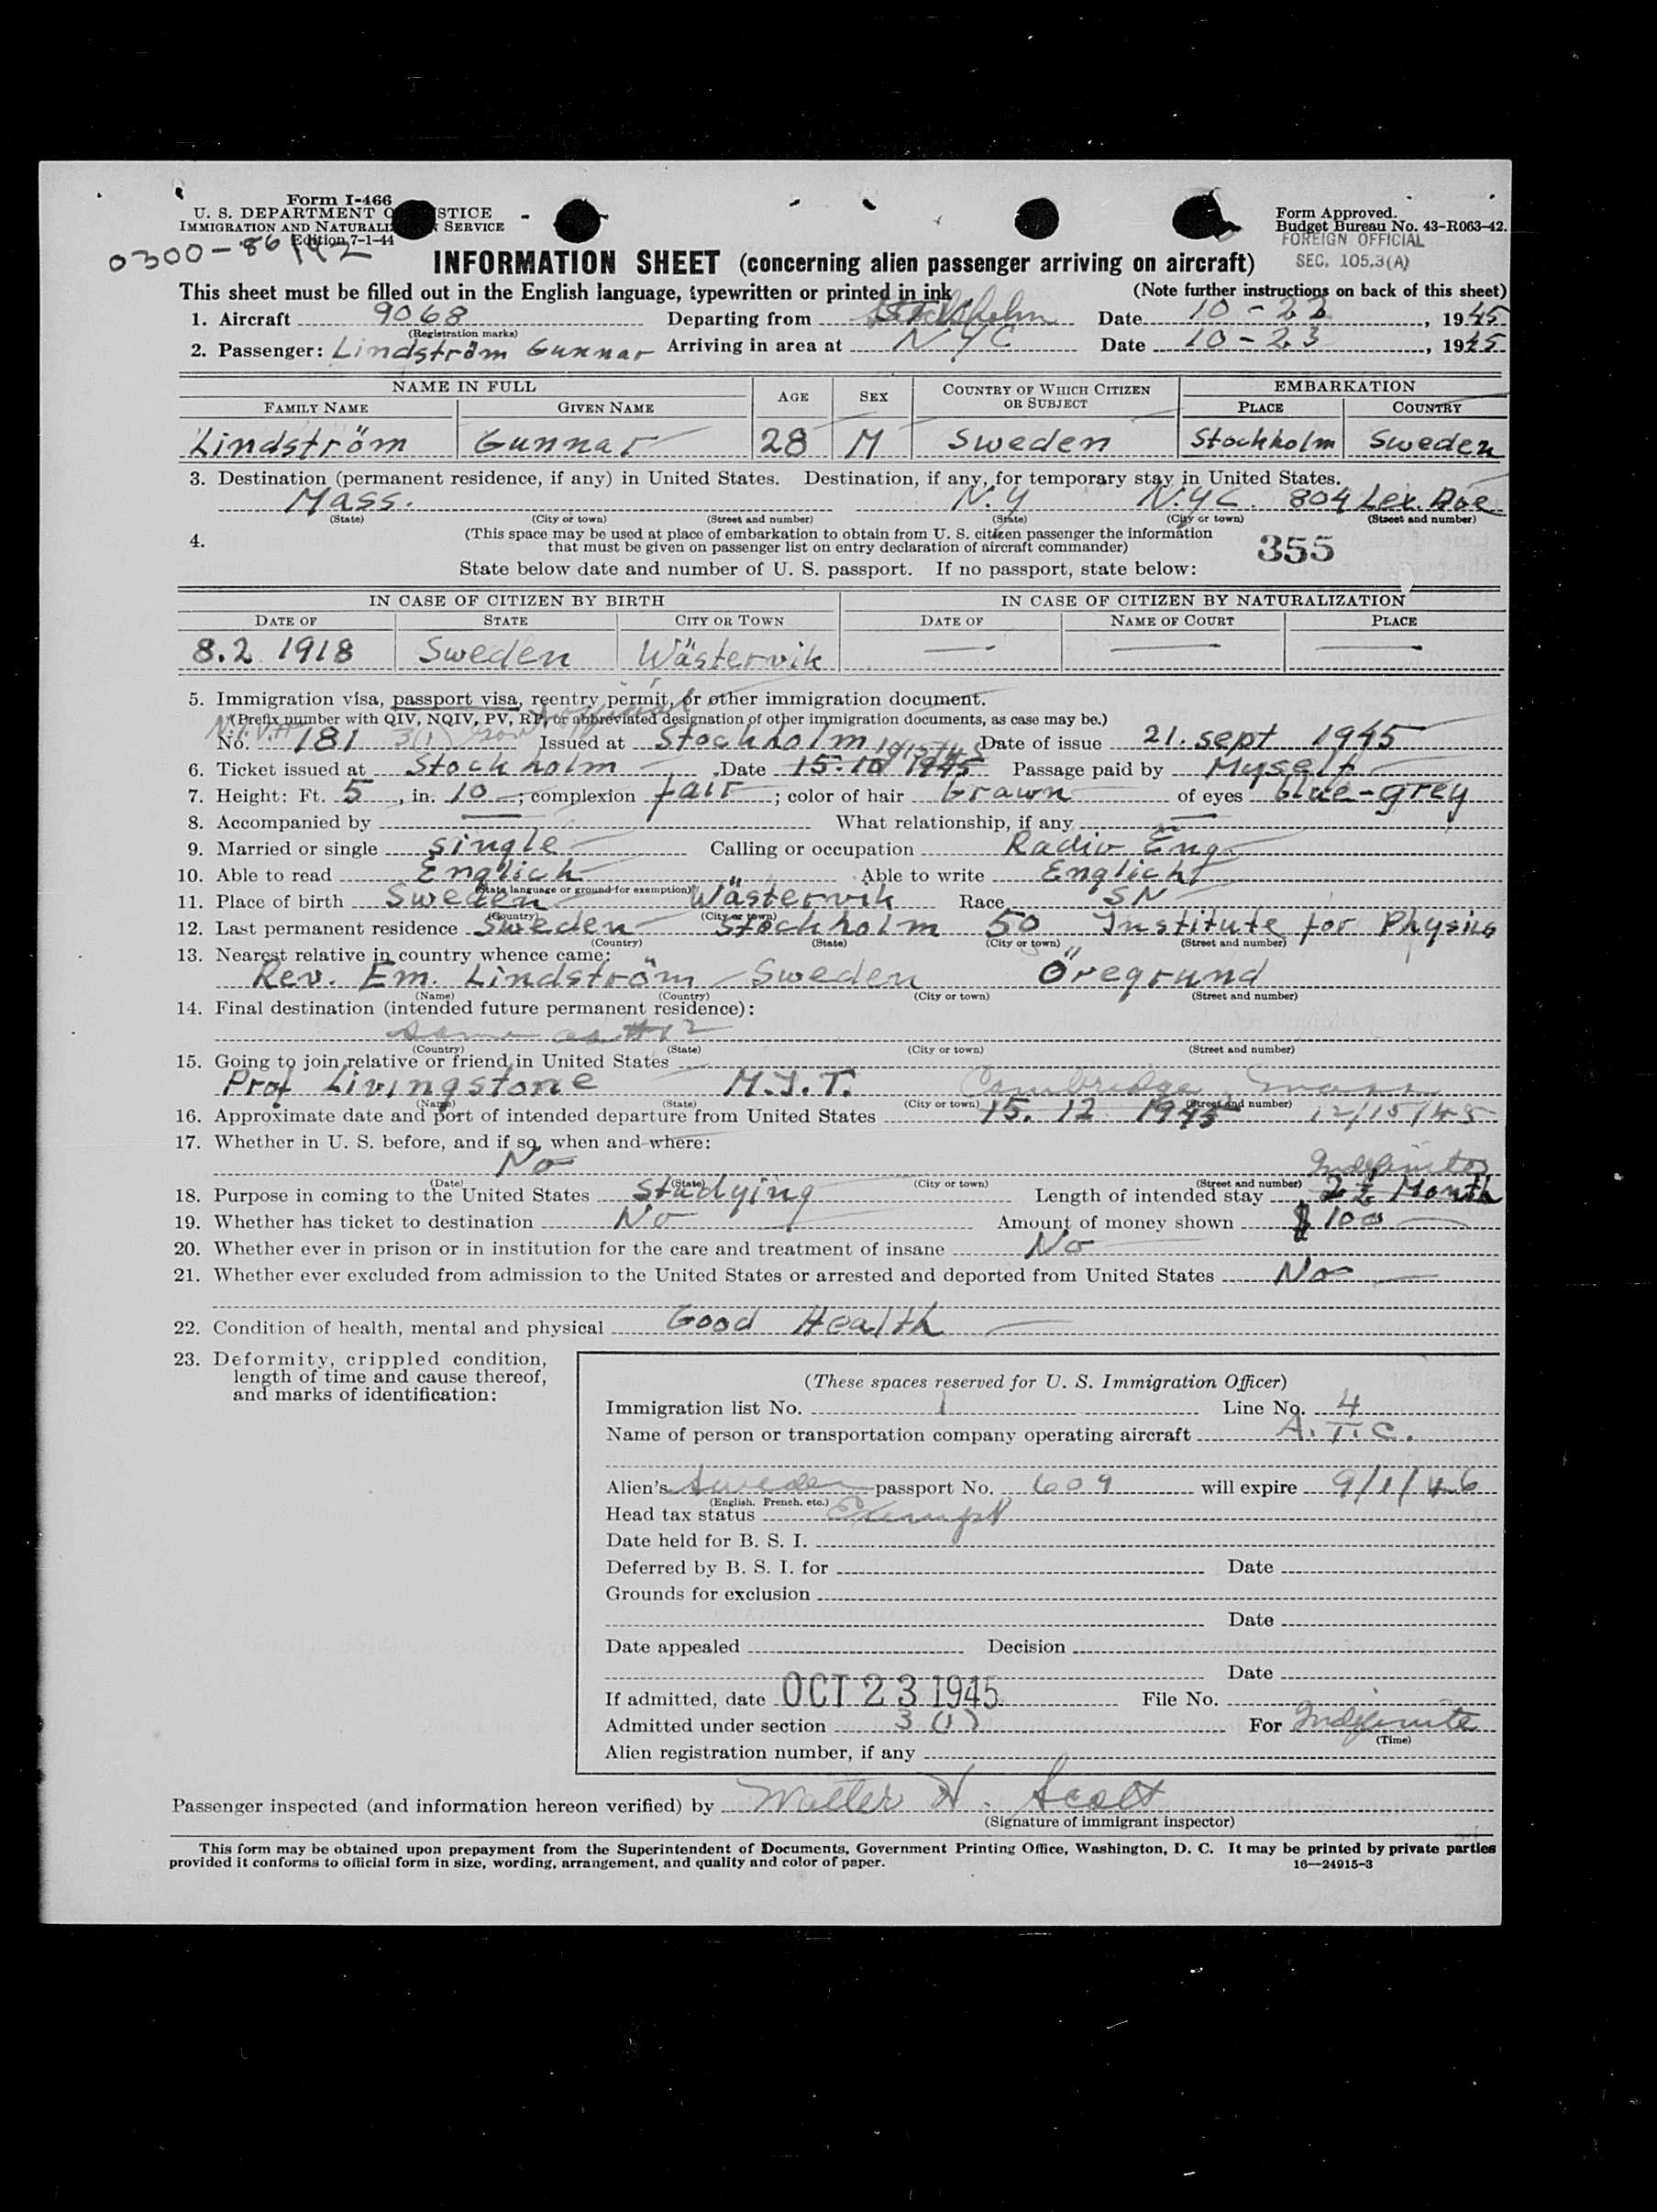 Form I-466
U. S. DEPARTMENT O STICE
IMMIGRATION AND NATURALI SERVICE
Edition 7-1-44
Form Approved.
Budget Bureau No. 43-R063-42.
FOREIGN OFFICIAL
SEC. 105.3(A)
0300-86142
INFORMATION SHEET (concerning alien passenger arriving on aircraft)
This sheet must be filled out in the English language, typewritten or printed in ink (Note further instructions on back of this sheet)
1. Aircraft 9068 Departing from Stockholm Date 10-22, 1945
(Registration marks)
2. Passenger: Lindström Gunnar Arriving in area at NYC Date 10-23, 1945
NAME IN FULL AGE SEX COUNTRY OF WHICH CITIZEN OR SUBJECT EMBARKATION
FAMILY NAME GIVEN NAME PLACE COUNTRY
Lindström Gunnar 28 M Sweden Stockholm Sweden
3. Destination (permanent residence, if any) in United States. Destination, if any, for temporary stay in United States.
Mass. N.Y N.Y.C. 804 Lex. Ave
(State) (City or town) (Street and number) (State) (City or town) (Street and number)
4. (This space may be used at place of embarkation to obtain from U. S. citizen passenger the information
that must be given on passenger list on entry declaration of aircraft commander)
355
State below date and number of U. S. passport. If no passport, state below:
IN CASE OF CITIZEN BY BIRTH IN CASE OF CITIZEN BY NATURALIZATION
DATE OF STATE CITY OR TOWN DATE OF NAME OF COURT PLACE
8.2 1918 Sweden Wästervik — — —
5. Immigration visa, passport visa, reentry permit, or other immigration document.
(Prefix number with QIV, NQIV, PV, RP, or abbreviated designation of other immigration documents, as case may be.)
No. 181 3(1) Issued at Stockholm Date of issue 21. sept 1945
10/15/45
6. Ticket issued at Stockholm Date 15.10 1945 Passage paid by Myself
7. Height: Ft. 5, in. 10; complexion fair; color of hair brawn of eyes blue-grey
8. Accompanied by — What relationship, if any —
9. Married or single single Calling or occupation Radio Eng.
10. Able to read Englich Able to write Englicht
(State language or ground for exemption)
11. Place of birth Sweden Wästervik Race SN
(Country) (City or town)
12. Last permanent residence Sweden Stockholm 50 Institute for Physics
(Country) (State) (City or town) (Street and number)
13. Nearest relative in country whence came:
Rev. Em. Lindström Sweden Öregrund
(Name) (Country) (City or town) (Street and number)
14. Final destination (intended future permanent residence):
same as #12
(Country) (State) (City or town) (Street and number)
15. Going to join relative or friend in United States
Prof Livingstone M.I.T. Cambridge, mass
(Name) (State) (City or town) (Street and number)
16. Approximate date and port of intended departure from United States 15. 12 1945 12/15/45
17. Whether in U. S. before, and if so, when and where:
No Indefinite
(Date) (State) (City or town) (Street and number)
18. Purpose in coming to the United States Studying Length of intended stay 2½ Month
19. Whether has ticket to destination No Amount of money shown $ 100
20. Whether ever in prison or in institution for the care and treatment of insane No
21. Whether ever excluded from admission to the United States or arrested and deported from United States No
22. Condition of health, mental and physical Good Health
23. Deformity, crippled condition,
length of time and cause thereof,
and marks of identification:
(These spaces reserved for U. S. Immigration Officer)
Immigration list No. 1 Line No. 4
Name of person or transportation company operating aircraft A.T.C.
Alien's Sweden passport No. 609 will expire 9/1/46
(English, French, etc.)
Head tax status Exempt
Date held for B. S. I.
Deferred by B. S. I. for Date
Grounds for exclusion
Date
Date appealed Decision
Date
If admitted, date OCT 23 1945 File No.
Admitted under section 3 (1) For Indefinite
(Time)
Alien registration number, if any
Passenger inspected (and information hereon verified) by Walter H. Scott
(Signature of immigrant inspector)
This form may be obtained upon prepayment from the Superintendent of Documents, Government Printing Office, Washington, D. C. It may be printed by private parties
provided it conforms to official form in size, wording, arrangement, and quality and color of paper. 16—24915-3